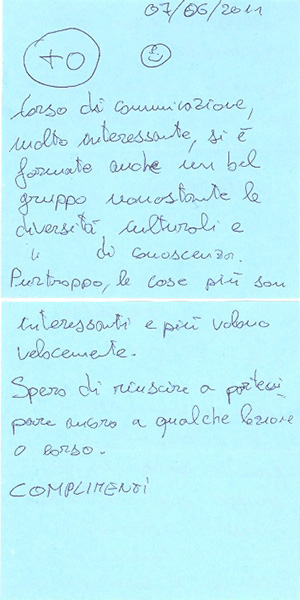 07/06/2011
+0
Corso di comunicazione,
molto interessante, si è
formato anche un bel
gruppo nonostante le
diversità culturali e
" di conoscenza.
Purtroppo, le cose più son
interessanti e più volano
velocemente.
Spero di riuscire a parteci-
pare ancora a qualche lezione
o corso.
COMPLIMENTI